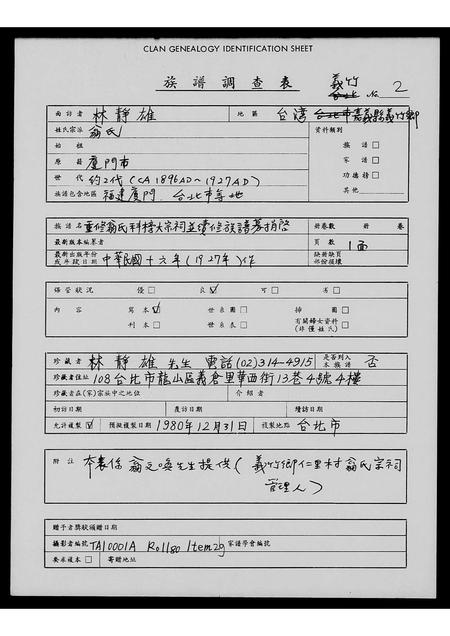 CLAN GENEALOGY IDENTIFICATION SHEET
族譜調查表 義竹 台北 No. 2
面訪者 林靜雄 地區 台灣 台北市嘉義縣義竹鄉
姓氏宗派 翁氏 資料類別
始祖 族譜 □
原籍 廈門市 家譜 □
世代 約2代 (CA 1896AD~1927AD) 功德榜 □
族譜包含地區 福建廈門、台北市等地 其他
族譜名 重修翁氏科榜大宗祠並續修族譜募捐啓 冊卷數 冊 卷
最新版本編纂者 頁數 1面
最新出版年份或手跋日期 中華民國十六年(1927年)作 缺冊缺頁部份損壞
保管狀況 優 □ 良 ☑ 可 □ 有 □
內容 寫本 ☑ 世系圖 □ 掃圖 □
刊本 □ 世系表 □ 有關婦女資料(非僅姓氏) □
珍藏者 林靜雄先生 電話(02)314-4915 是否列入本族譜 否
珍藏者住址 108台北市龍山區義倉里華西街13巷4號4樓
珍藏者在(家)宗族中之地位 介紹者
初訪日期 覆訪日期 續訪日期
允許複製 ☑ 預擬複製日期 1980年12月31日 複製地點 台北市
附註 本表係翁文喚先生提供(義竹鄉仁里村翁氏宗祠
管理人)
贈予者獎狀頒贈日期
攝影者編號 TA10001A Roll80 Item29 家譜學會編號
要求複本 □ 寄贈地址